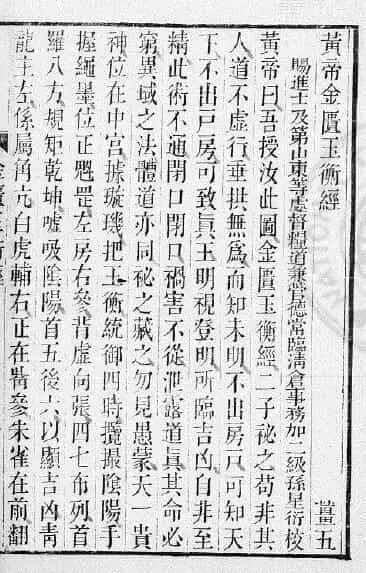 黃帝金匱玉衡經
賜進士及第山東等處督糧道兼管德常臨淸倉事務加二級孫星衍校
黃帝曰吾授汝此圖金匱玉衡經二子祕之苟非其
人道不虛行垂拱無爲而知未明不出房戸可知天
下不出戸房可致眞王明視登明所臨吉凶自非至
精此術不通閉口閉口禍害不從泄露道眞其命必
窮異域之法體道亦同祕之藏之勿見愚蒙天一貴
神位在中宮據璇璣把玉衡統御四時攬撮陰陽手
握繩墨位正魁罡左房右參背虛向張四七布列首
羅八方規矩乾坤噓吸陰陽首五後六以顯吉凶靑
龍主左係屬角亢白虎輔右正在觜參朱雀在前翻
五